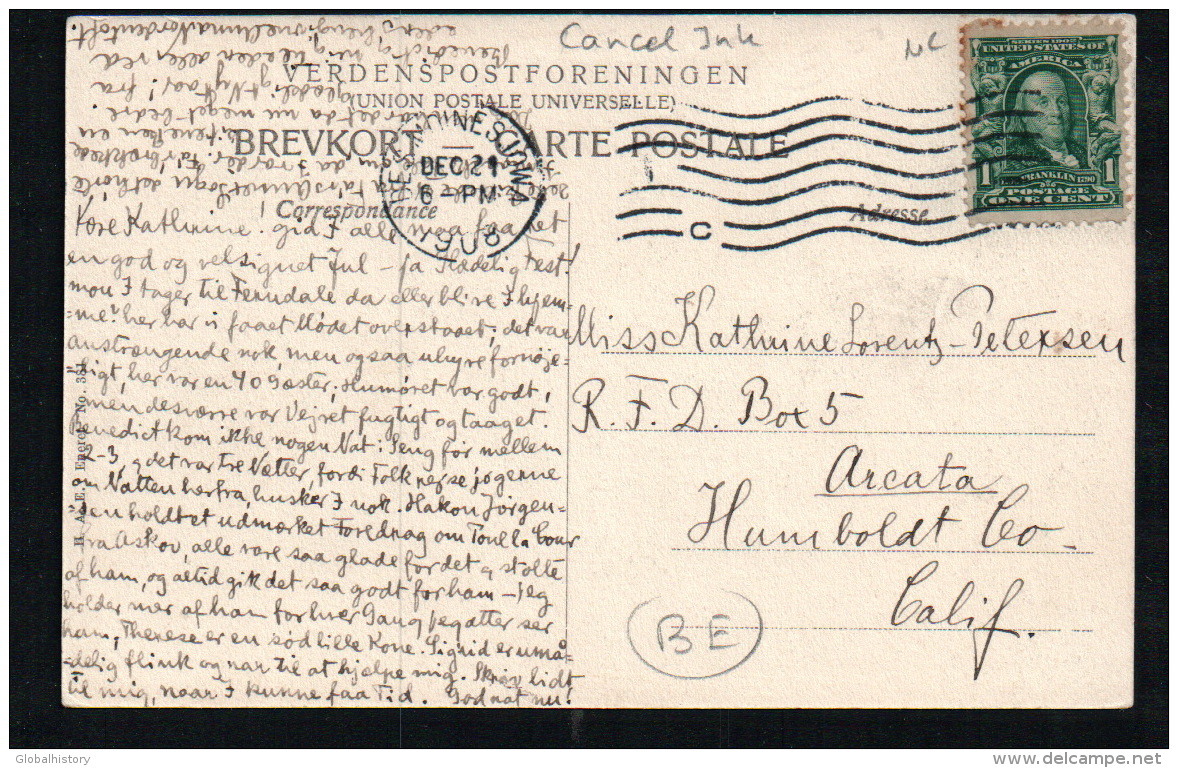 Cancel Ink
NC
VERDENSPOSTFORENINGEN
(UNION POSTALE UNIVERSELLE)
BREVKORT — CARTE POSTALE
Correspondance
Adresse
DES MOINES, IOWA
DEC 21
6 PM
1908
C
SERIES 1902
UNITED STATES OF
AMERICA
FRANKLIN
1 1
POSTAGE
ONE CENT
Kære Kathrine! gid I alle maa faaet
en god og velsignet Jul – ja Glædelig Fest!
mon I tager til Ferndale da eller blive I hjem-
-me? her har vi faaet Mødet overstaaet, det var
anstrængende nok, men ogsaa uhyre fornøje-
-ligt, her var en 40 Gæster; Humøret var godt,
men desværre var Vejret fugtigt og taaget.
Benedict kom ikke nogen Nat i Seng før mellem
2-3, og det var tre Nætter, fordi Folk rejse jo gerne
om Natten herfra, husker I nok. Hakon Jørgen-
-sen holdt et udmærket Foredrag om Poul la Cour
fra Askov, alle vare saa glade for det og stolte
af ham, og altid gik det saa godt for ham – jeg
holder mer af ham for hver Gang jeg atter ser
ham, Therese er en sød lille Kone. Sigrid er umå-
-delig flink og rar til at hjælpe mig. Skriv lidt
til mig, naar I kunne faa Tid. God nat nu!
Miss Kathrine Lorentz-Petersen
R. F. D. Box 5
Arcata
Humboldt Co
Calif.
BE
H. A. E. Eneret No. 331
Globalhistory
www.delcampe.net